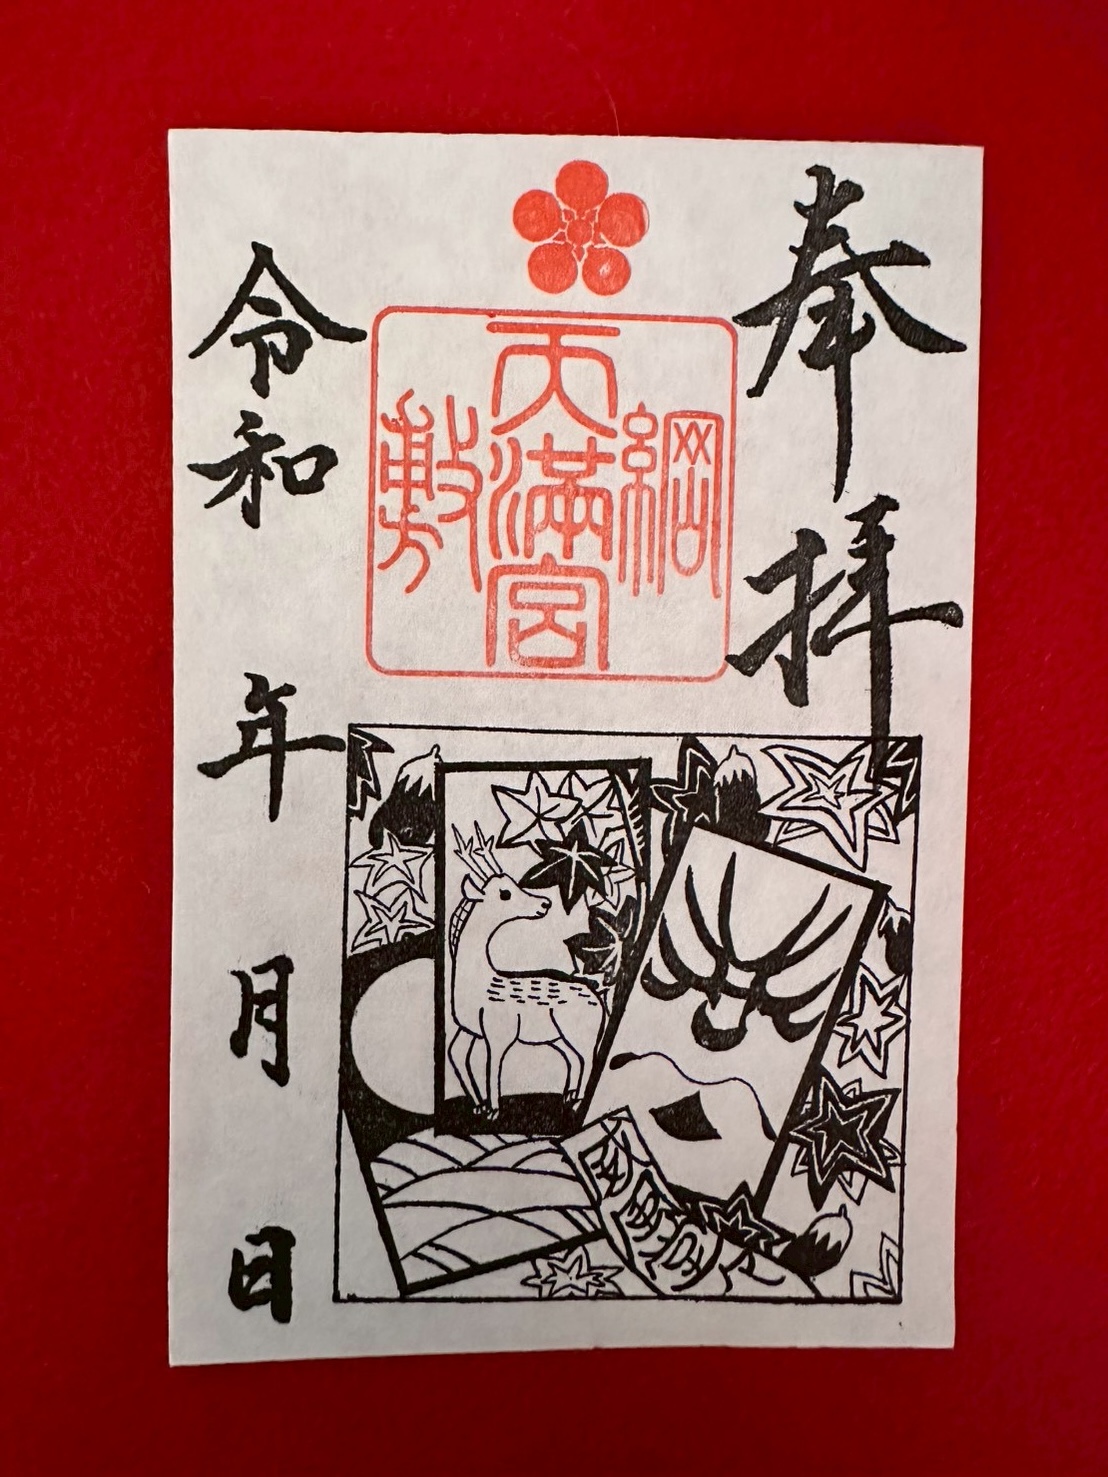 奉拝
綱敷
天満宮
令和　年　月　日